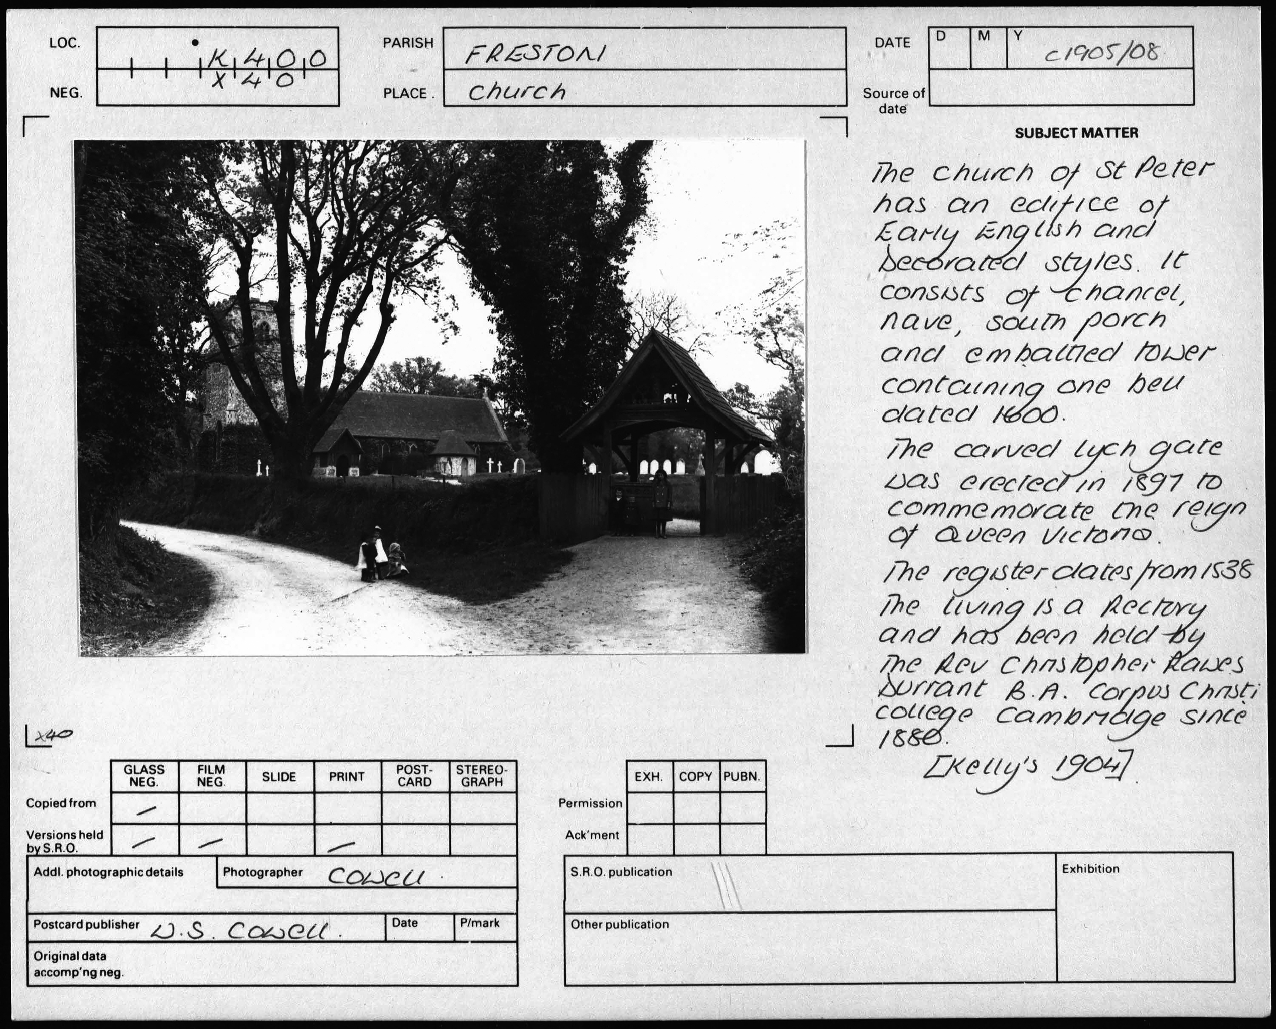 LOC.
K400
X40
NEG.
PARISH
FRESTON
PLACE.
church
DATE
D M Y
c1905/08
Source of
date
SUBJECT MATTER
The church of St Peter
has an edifice of
Early English and
Decorated styles. It
consists of chancel,
nave, south porch
and embattled tower
containing one bell
dated 1600.
The carved lych gate
was erected in 1897 to
commemorate the reign
of Queen Victoria.
The register dates from 1538
The living is a Rectory
and has been held by
the Rev Christopher Rawes
Durrant B.A. Corpus Christi
college Cambridge since
1880.
[Kelly's 1904]
x40
GLASS NEG. FILM NEG. SLIDE PRINT POST-CARD STEREO-GRAPH
Copied from
Versions held
by S.R.O.
EXH. COPY PUBN.
Permission
Ack'ment
Addl. photographic details
Photographer COWELL.
Postcard publisher W.S. COWELL.
Date
P/mark
Original data
accomp'ng neg.
S.R.O. publication
Other publication
Exhibition